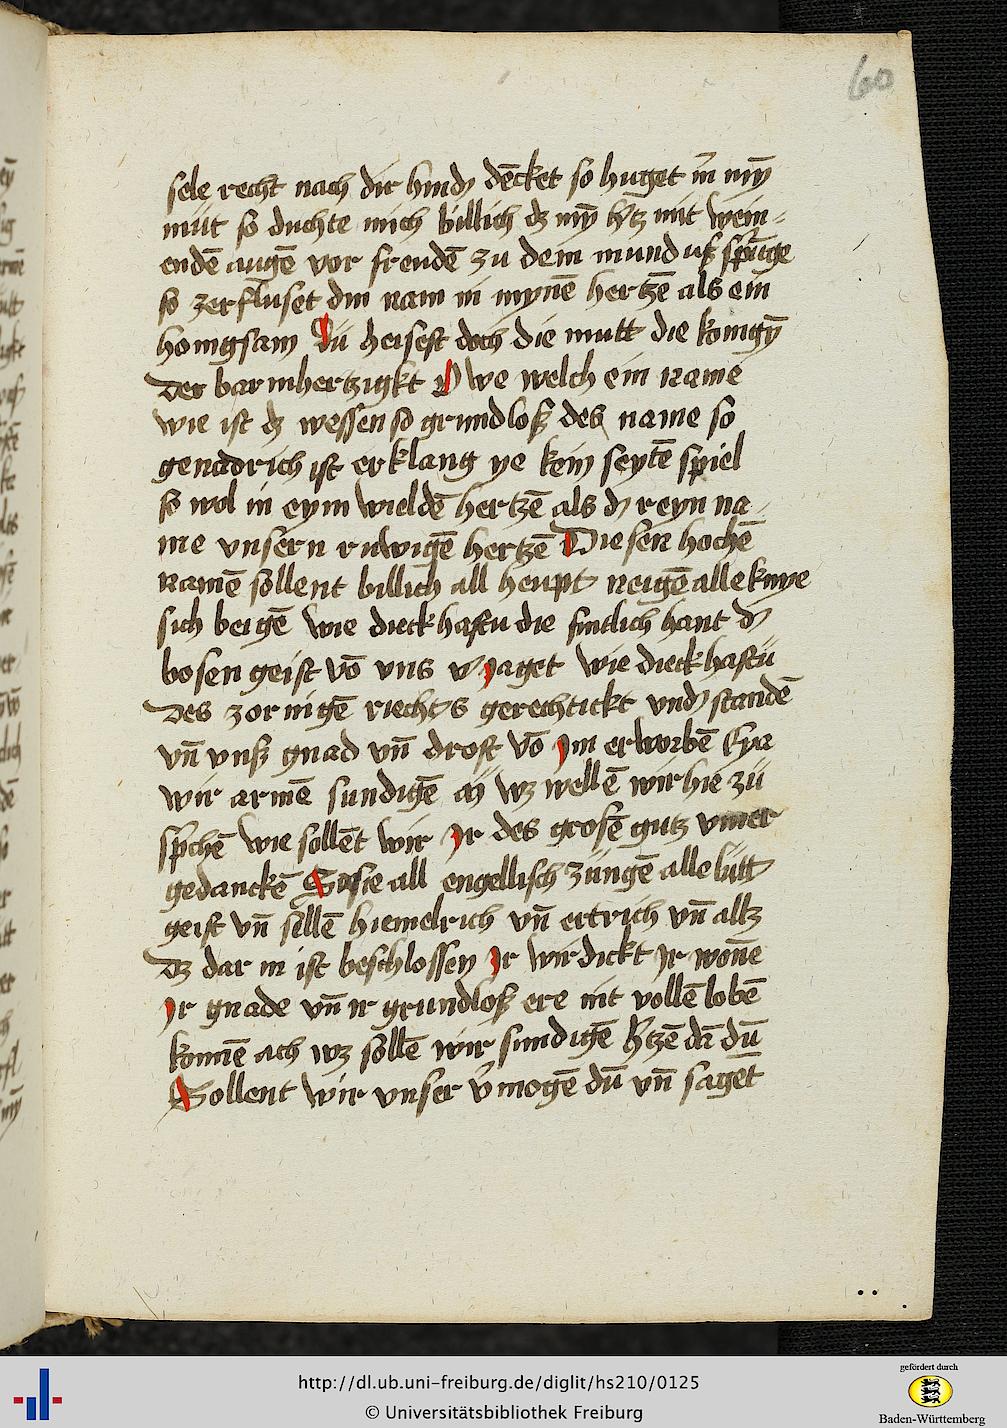 60
sele recht nach dir hinð dēcket so huget in̄ mȳ
mut so duchte mich billich dz mȳ h̄tz mit wein-
endē augē vor freudē zu dem mund uß sprūge
so zerfluset din nam in mynē hertzē als ein
honigsam Du heisest doch die mutt die konigȳ
Der barmhertzigkt O we welch ein name
wie ist dz wessen so grundloß des name so
genadrich ist erklang ye kein seytē spiel
so wol in eym wieldē hertzē als ð reyn na-
me unsern ruwigē hertzē Diesen hochē
namē sollent billich all heupt neigē alle knye
sich beigē wie dieck hastu die fintlich hant ð
bosen geist vō uns v̄ jaget wie dieck hastu
Des zornigē riechts gerechtickt unð standē
vn̄ unß gnad vn̄ drost vō jm erworbē Eya
wir armē sundigē ay wz wellē wir hie zu
sp̄chē wie sollēt wir Jr des grosē gutz vmer
gedanckē So sie all engellisch zungē alle lutt
geist vn̄ sellē hiemelrich vn̄ ertrich vn̄ allz
Dz dar in ist beschlossen Jr wirdickt Jr wonē
Jr gnade vn̄ ir grundloß ere nit vollē lobē
konnē ach wz sollē wir sundigē h̄tzē dā dū
Sollent wir unser v̄mogē dū vn̄ sagēt
http://dl.ub.uni-freiburg.de/diglit/hs210/0125
© Universitätsbibliothek Freiburg
gefördert durch
Baden-Württemberg